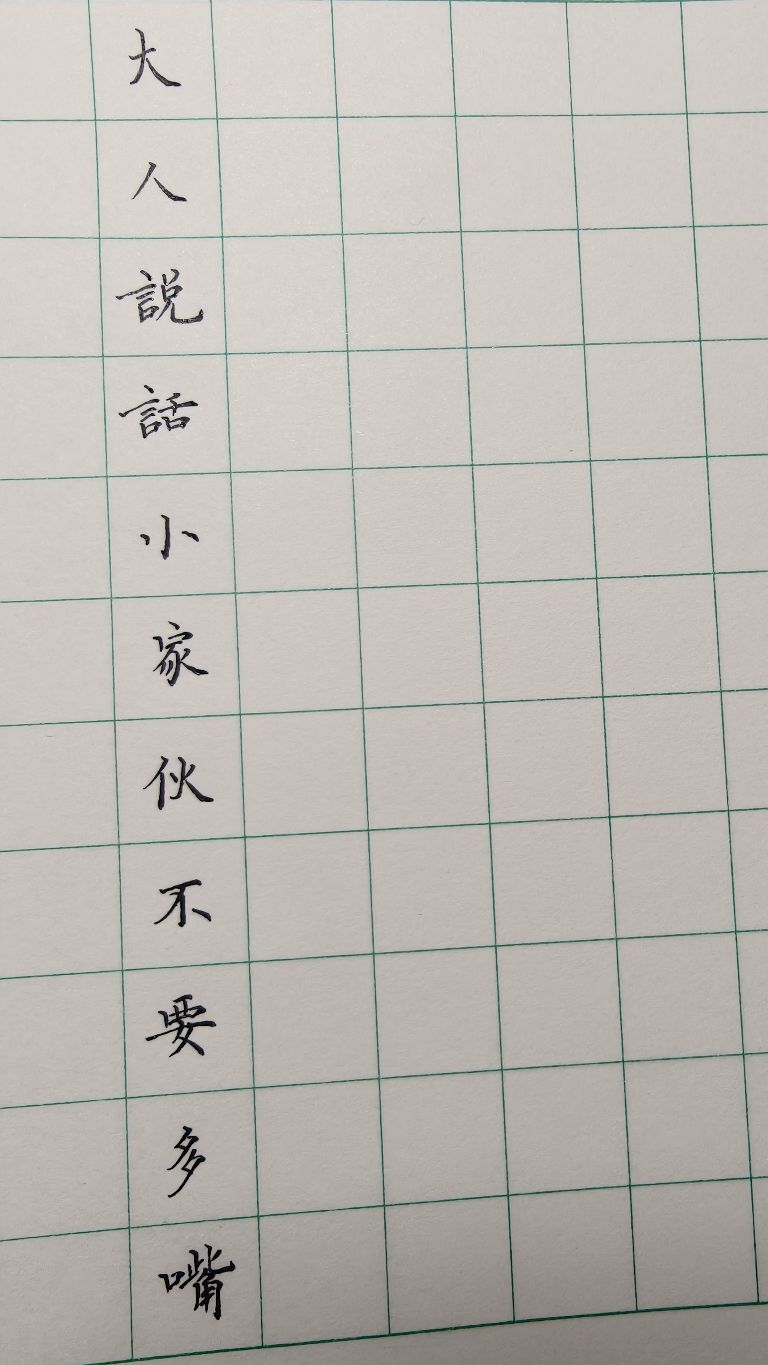 大人説話小家伙不要多嘴